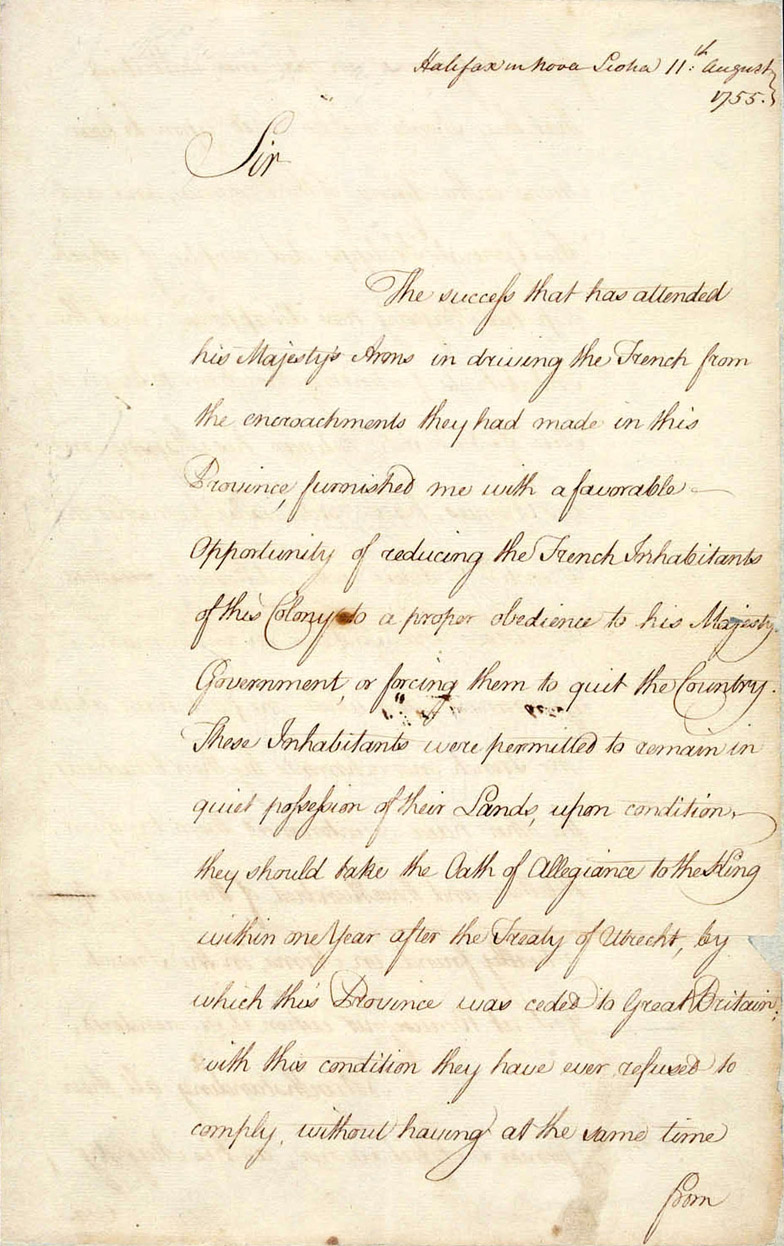 Halifax in Nova Scotia 11:th August
1755.
Sir
The success that has attended
his Majesty's Arms in driving the French from
the encroachments they had made in this
Province, furnished me with a favorable
Opportunity of reducing the French Inhabitants
of this Colony to a proper obedience to his Majesty
Government, or forcing them to quit the Country.
These Inhabitants were permitted to remain in
quiet possession of their Lands, upon condition
they should take the Oath of Allegiance to the King
within one Year after the Treaty of Utrecht, by
which this Province was ceded to Great Britain;
with this condition they have ever refused to
comply, without having at the same time
from